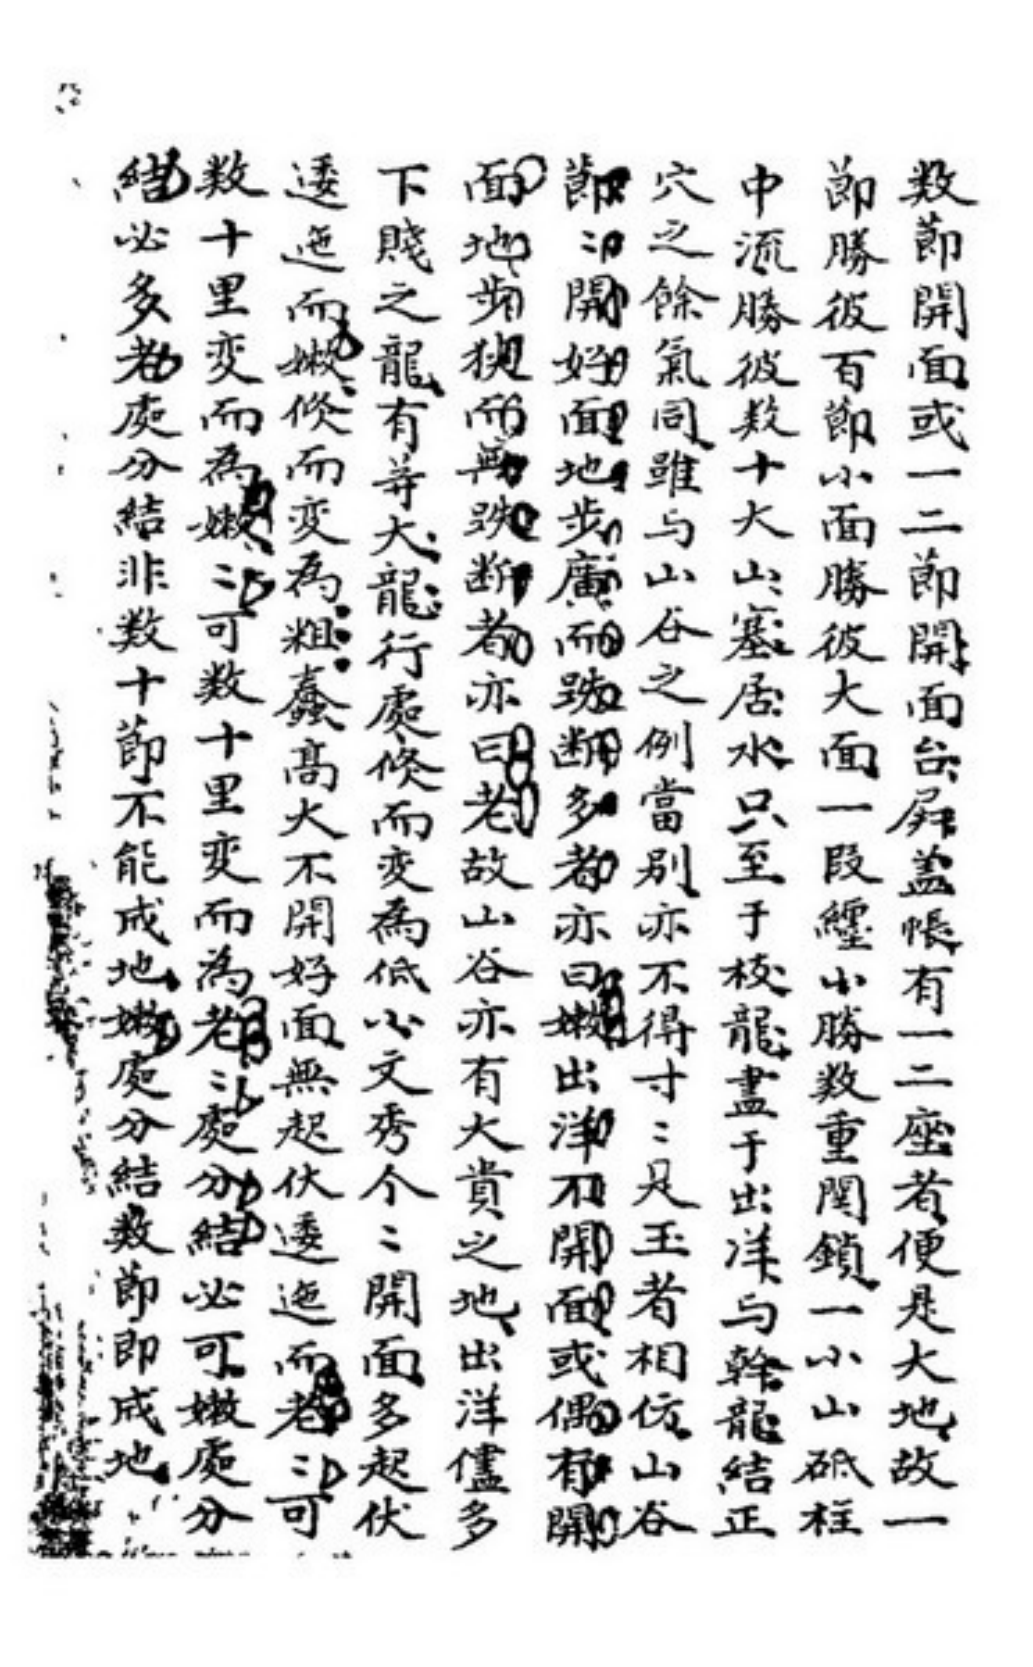 数節開面或一二節開面台屏盖帳有一二座者便是大地故一
節勝彼百節小面勝彼大面一段纏山勝数重関鎖一小山砥柱
中流勝彼数十大山塞居水只至于枝龍盡于出洋与幹龍結正
穴之餘氣同雖与山谷之例當別亦不得寸〻是玉者相仿山谷
節〻開好面地步廣而跌断多者亦曰嫩出洋不開面或偶有開
面地步狹而無跌断者亦曰老故山谷亦有大貴之地出洋儘多
下賤之龍有等大龍行處倏而変為低小文秀个〻開面多起伏
逶迤而嫩倏而変為粗蠢高大不開好面無起伏逶迤而老〻可
数十里変而為嫩〻可数十里変而為老〻處分結必可嫩處分
結必多老處分結非数十節不能成地嫩處分結数節即成地